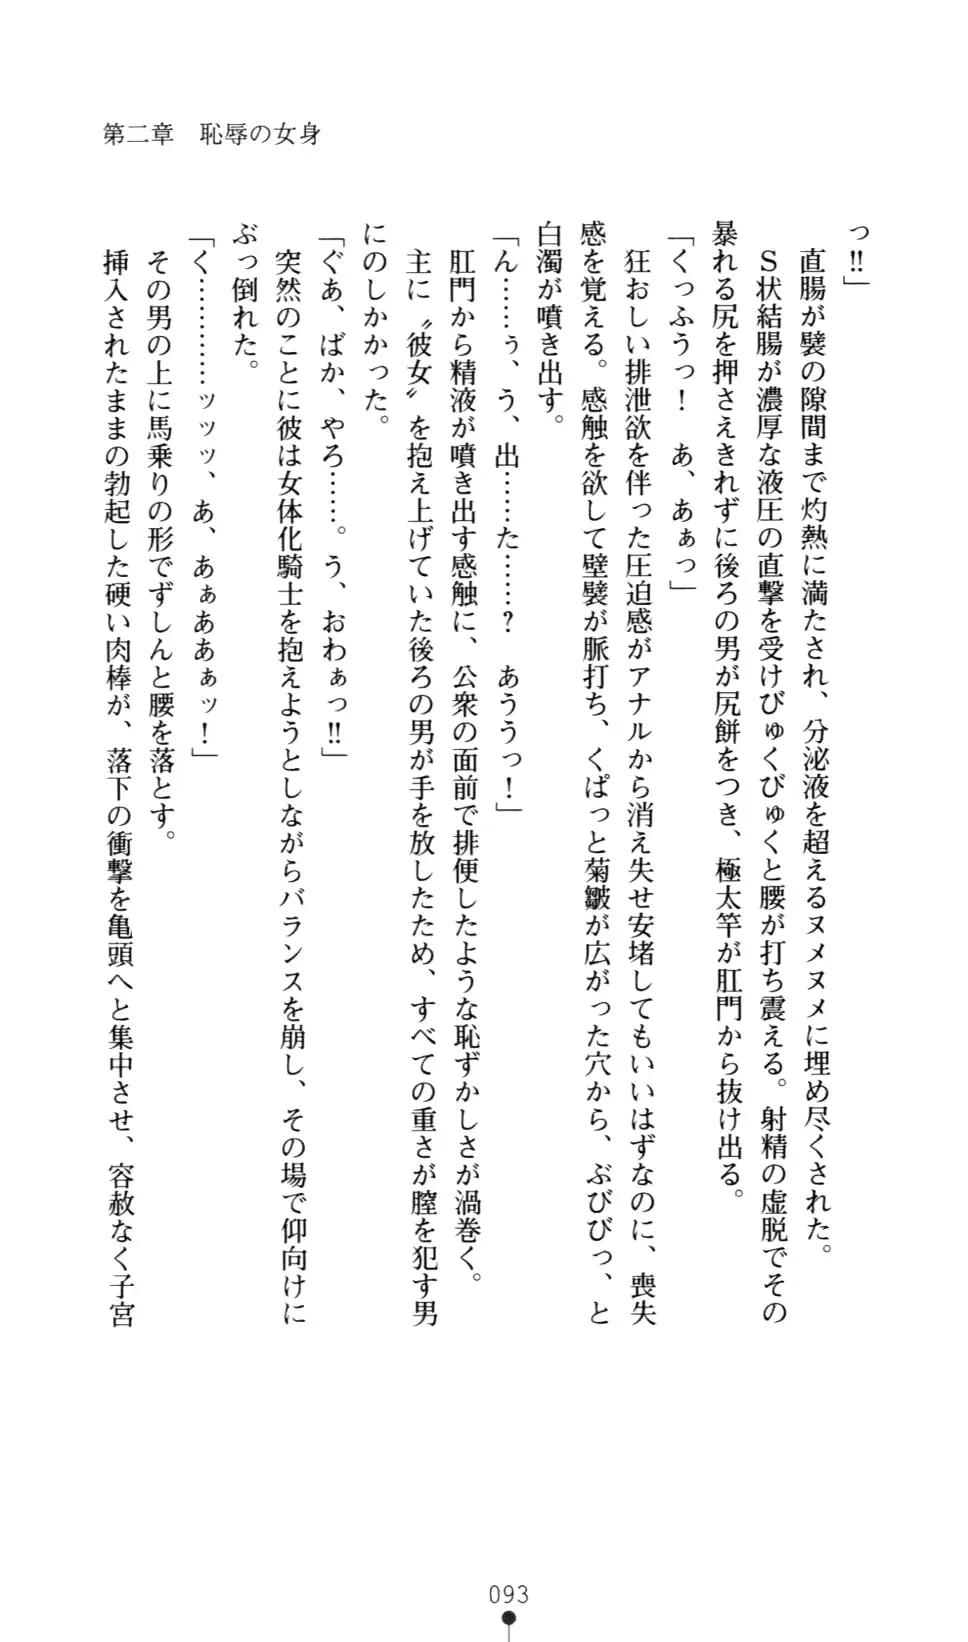 第二章　恥辱の女身
っ!!」
　直腸が襞の隙間まで灼熱に満たされ、分泌液を超えるヌメヌメに埋め尽くされた。
　Ｓ状結腸が濃厚な液圧の直撃を受けびゅくびゅくと腰が打ち震える。射精の虚脱でその
暴れる尻を押さえきれずに後ろの男が尻餅をつき、極太竿が肛門から抜け出る。
「くっふうっ！　あ、あぁっ」
　狂おしい排泄欲を伴った圧迫感がアナルから消え失せ安堵してもいいはずなのに、喪失
感を覚える。感触を欲して壁襞が脈打ち、くぱっと菊皺が広がった穴から、ぶびびっ、と
白濁が噴き出す。
「ん……ぅ、う、出……た……？　あううっ！」
　肛門から精液が噴き出す感触に、公衆の面前で排便したような恥ずかしさが渦巻く。
　主に〝彼女〟を抱え上げていた後ろの男が手を放したため、すべての重さが膣を犯す男
にのしかかった。
「ぐあ、ばか、やろ……。う、おわぁっ!!」
　突然のことに彼は女体化騎士を抱えようとしながらバランスを崩し、その場で仰向けに
ぶっ倒れた。
「く…………ッッッ、あ、あぁああぁッ！」
　その男の上に馬乗りの形でずしんと腰を落とす。
　挿入されたままの勃起した硬い肉棒が、落下の衝撃を亀頭へと集中させ、容赦なく子宮
093